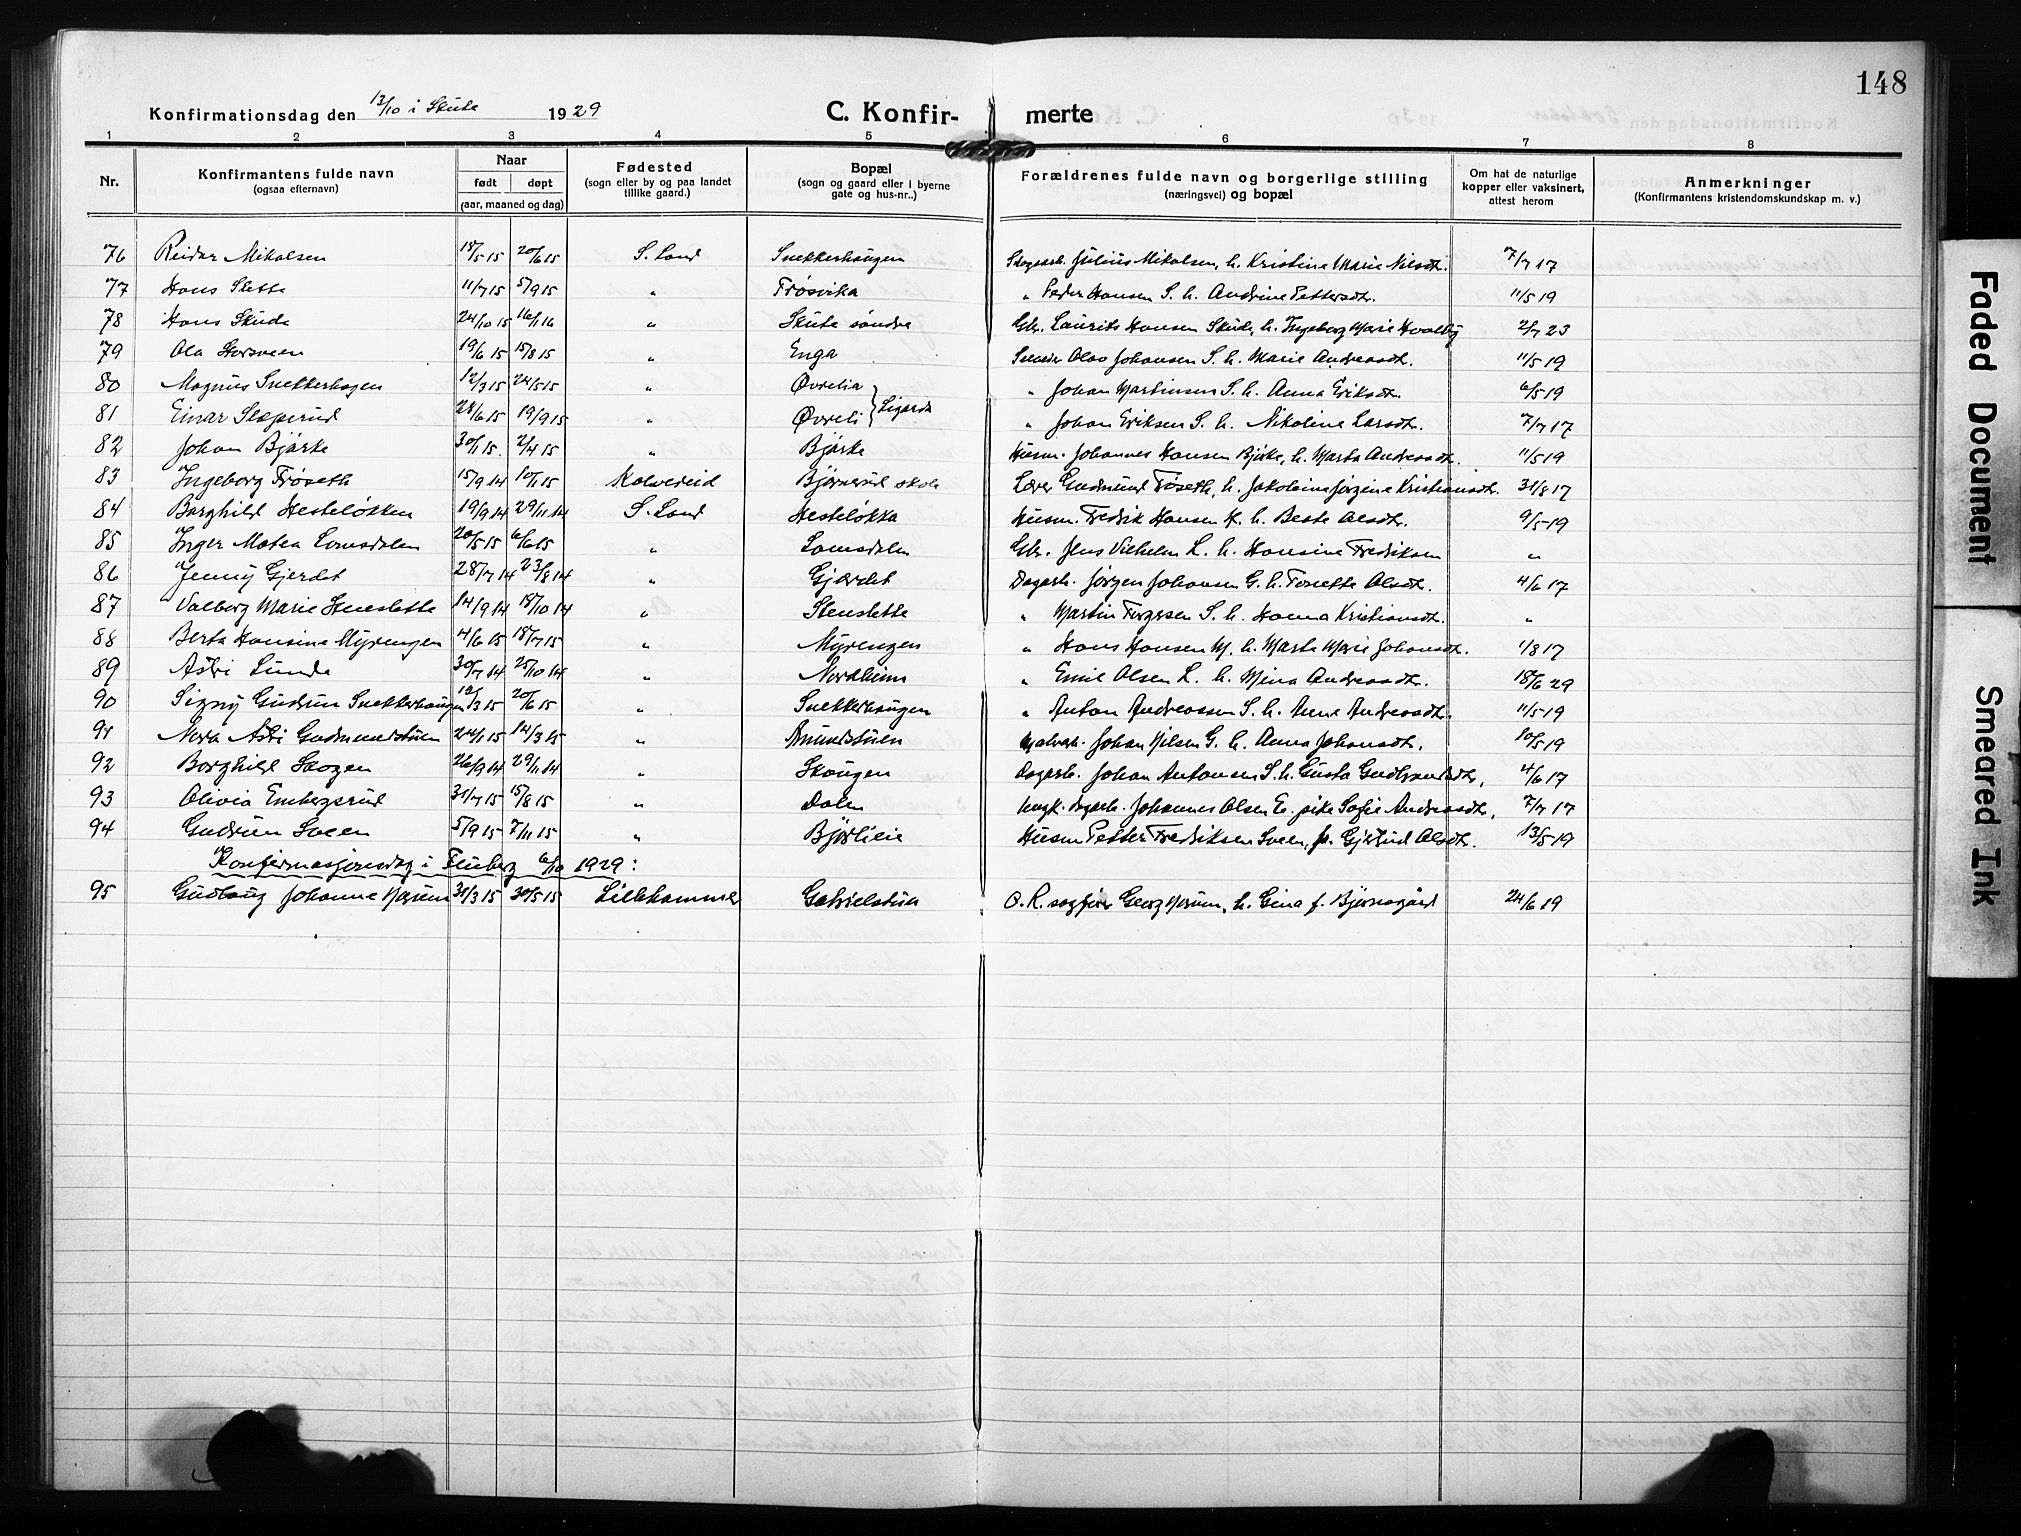 148
Konfirmationsdag den 13/10 i Skute 1929 C. Konfir- merte
1 2 3 4 5 6 7 8
Nr. Konfirmantens fulde navn (ogsaa efternavn) Naar født døpt (aar, maaned og dag) Fødested (sogn eller by og paa landet tillike gaard.) Bopæl (sogn og gaard eller i byerne gate og hus-nr..) Forældrenes fulde navn og borgerlige stilling (næringsvei) og bopæl Om hat de naturlige kopper eller vaksinert, attest herom Anmerkninger (Konfirmantens kristendomskundskap m. v.)
76 Reidar Mikalsen 18/5 15 20/6 15 S. Land Snekkerhaugen Skogsarb. Julius Mikalsen, h. Kristine Marie Nilsdt. 7/7 17
77 Hans Slette 11/7 15 5/9 15 " Trøsvika " Peder Hansen S. h. Andrine Pettersdt. 11/5 19
78 Hans Skude 24/10 15 16/1 16 " Skute søndre Gbr. Laurits Hansen Skute, h. Ingeborg Marie Hvalby 2/7 23
79 Ola Storsveen 19/6 15 15/8 15 " Enga Snekker Olav Johansen S. h. Marie Andreasdt. 11/5 19
80 Magnus Snekkerhagen 12/3 15 24/5 15 " Øvrelia " Johan Martinsen S. h. Anna Eriksdt. 6/5 19
81 Einar Slæperud 28/6 15 19/9 15 " Øvreli } Ligarda " Johan Eriksen S. h. Nikoline Larsdt. 7/7 17
82 Johan Bjørke 30/1 15. 2/4 15 " Bjørke Husm. Johannes Hansen Bjørke, h. Marta Andreasdt. 11/5 19
83 Ingeborg Trøseth 15/9 14 10/1 15 Kolvereid Bjørnerud skole Lærer Gudmund Trøseth, h. Jakobine Jørgine Kristiansdt. 31/8 17
84 Borghild Hesteløkken 19/9 14 29/11 14 S. Land Hesteløkka Husm. Fredrik Hansen H. h. Beate Olsdt. 9/5-19
85 Inger Matea Lomsdalen 20/5 15 6/6 15 " Lomsdalen Gbr. Jens Vilhelm L. h. Hansine Fredriksen "
86 Jenny Gjerdet 28/7 14 23/8 14 " Gjærdet Dagarb. Jørgen Johansen G. h. Tonette Olsdt. 4/6 17
87 Valborg Marie Stenslette 14/9 14 18/10 14 " Stenslette " Martin Torgersen S. h. Hanna Kristiansdt. "
88 Berta Hansine Myrengen 4/6 15 18/7 15 " Myrengen " Hans Hansen M. h. Marta Marie Johansdt. 1/8 17
89 Astri Lunde 30/7 14 25/10 14 " Nordheim " Emil Olsen L. h. Mina Andreasdt. 18/6 29
90 Signy Gudrun Snekkerhaugen 12/3 15 20/6 15 " Snekkerhaugen " Anton Andreassen S. h. Anne Andreasdt. 11/5 19
91 Nora Astri Gudmundstuen 24/1 15 14/3 15 " Amundstuen Johan Nilsen G. h. Anna Johansdt. 10/5 19
92 Borghild Skogen 26/9 14 29/11 14 " Skougen Dagarb. Johan Antonsen S. h. Gusta Gudbrandsdt, 4/6 17
93 Olivia Embergsrud 31/7 15 15/8 15 " Dalen Ungk. dagarb. Johannes Olsen E. pike Sofie Andreasdt. 7/7 17
94 Gudrun Sveen 5/9 15 7/11 15 " Bjørlieie Husm Petter Fredriksen Sveen, h. Gjertrud Olsdt. 13/5-19
Konfirmasjonsdag i Fluberg 6/10 1929:
95 Gudlaug Johanne Nørum 31/3 15 30/5 15 Lillehammer Gabrielstua O. R. sagfører Georg Nørum, h. Gina f. Bjørnsgård 24/6 19
Faded Document
Smeared Ink